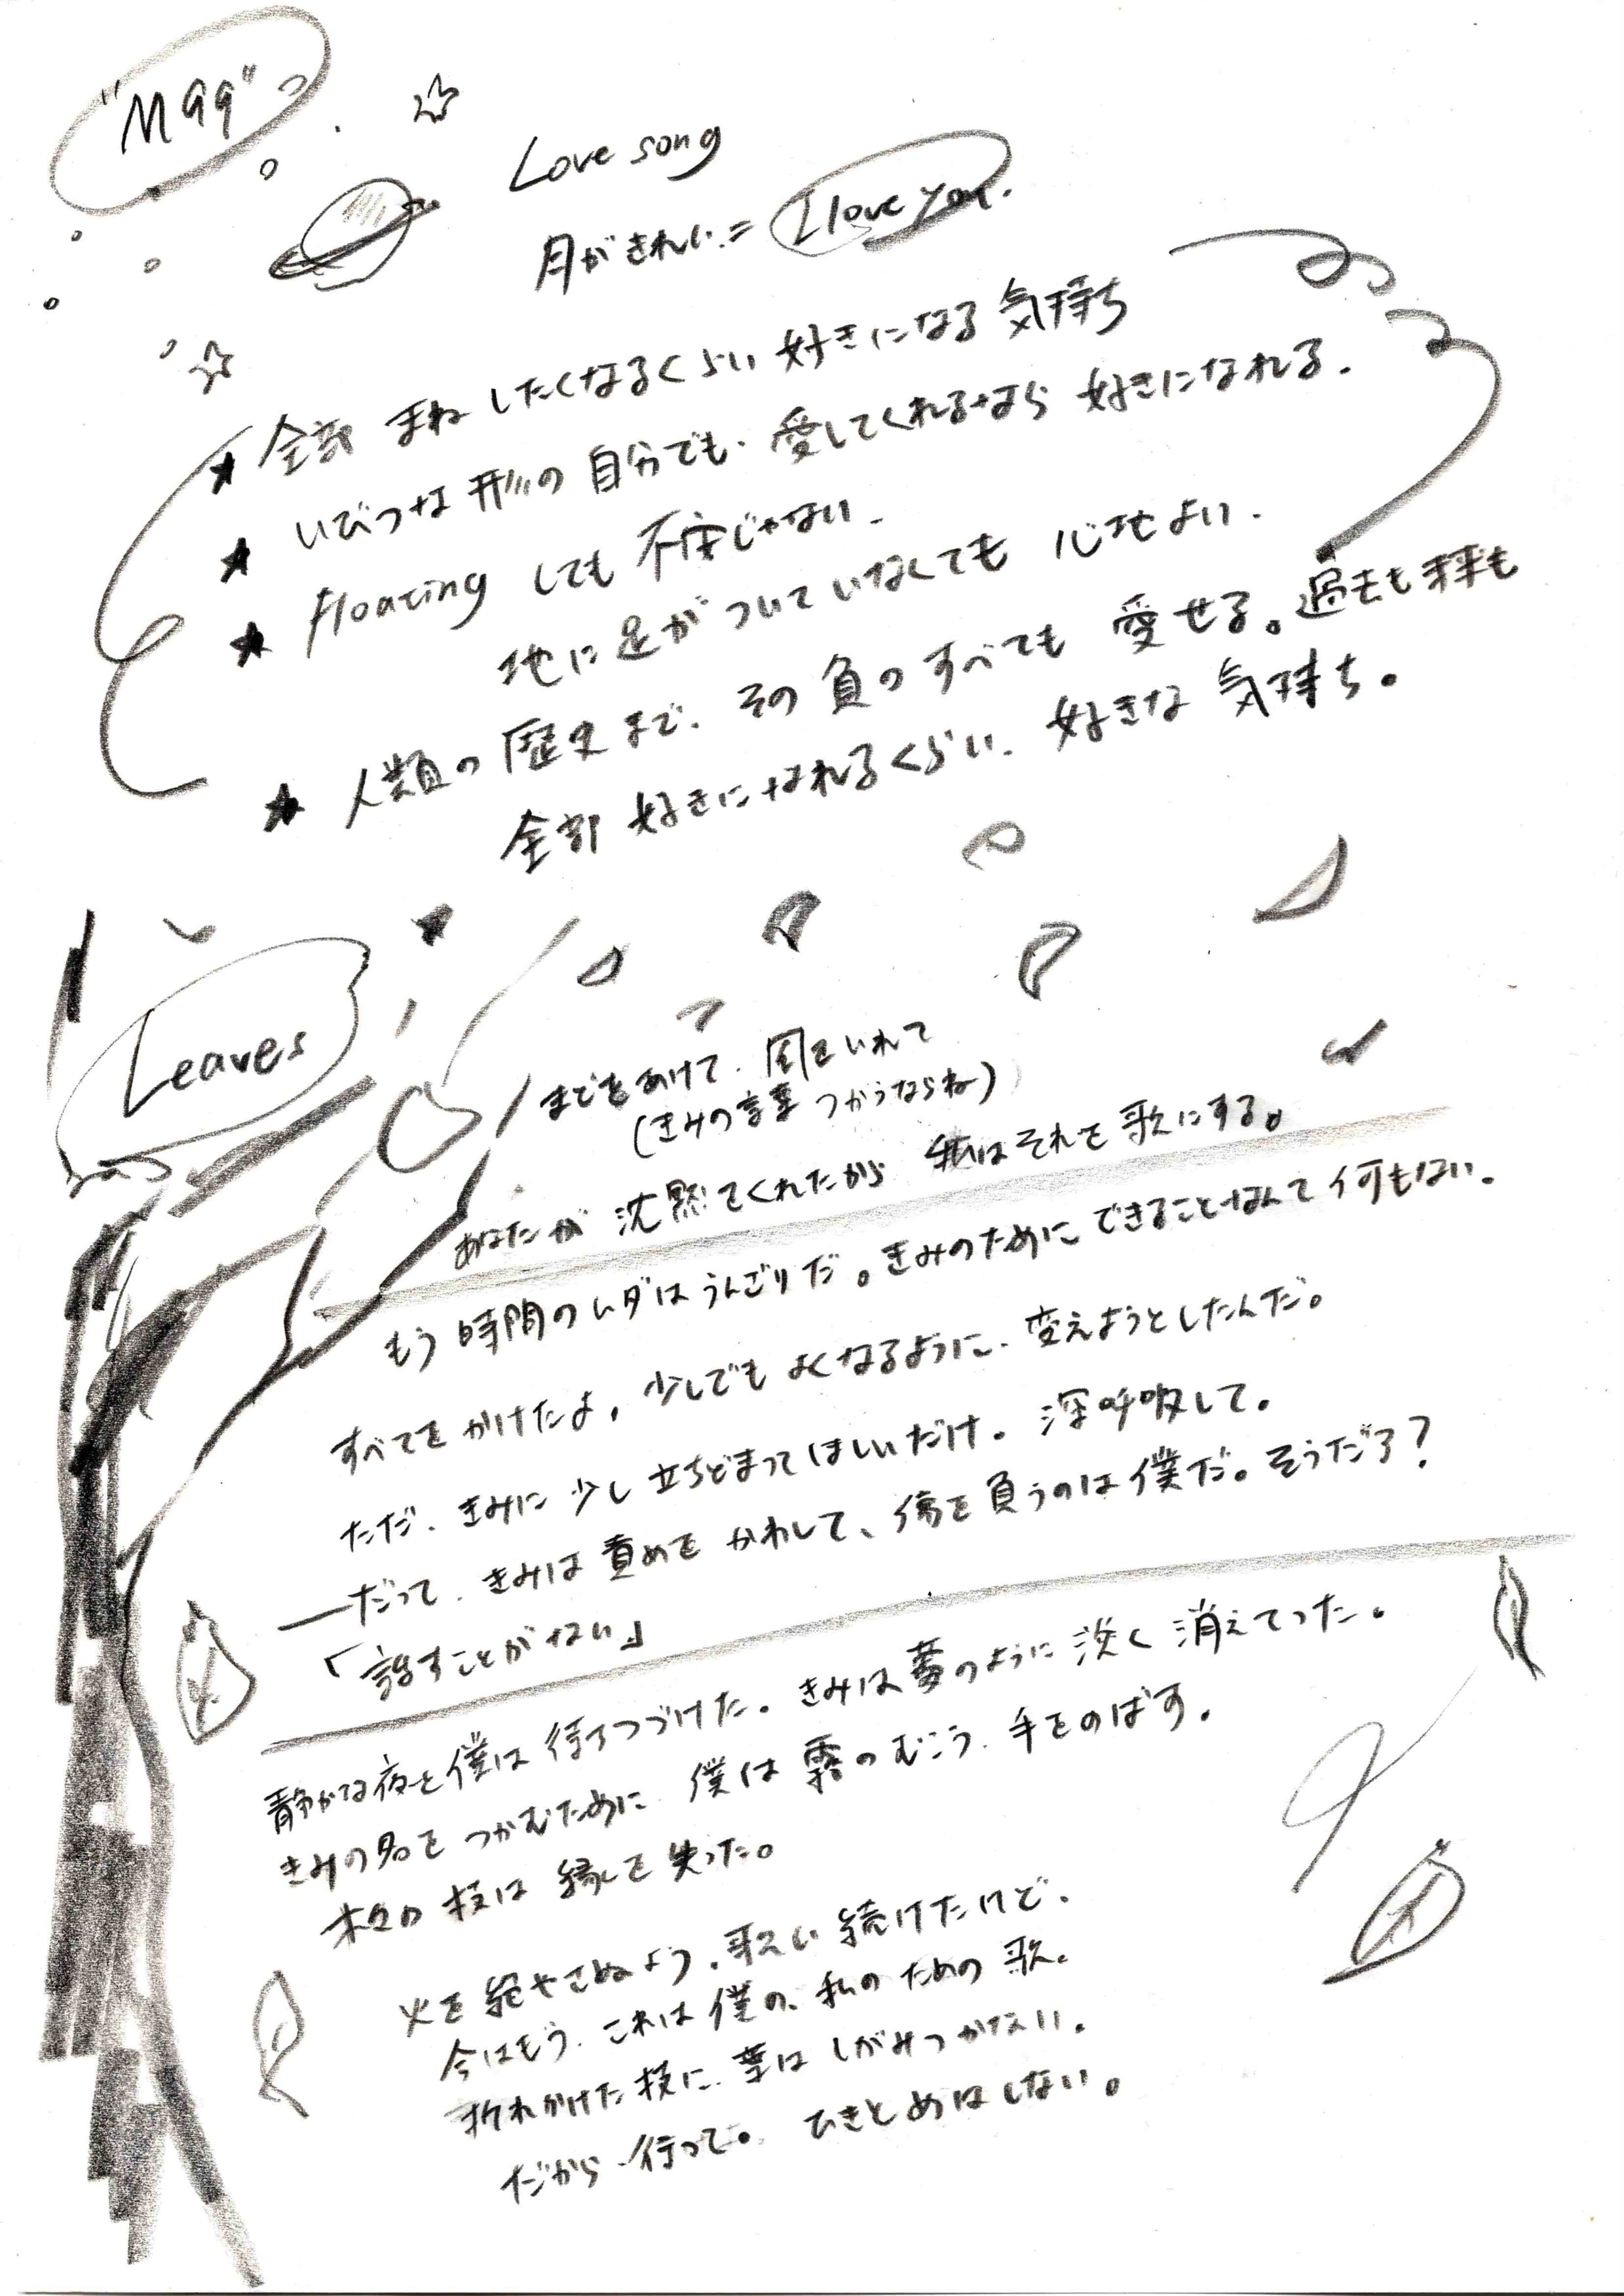 "M99"
Love song
月がきれい = I love you.
★ 全部 まねしたくなるくらい 好きになる 気持ち
★ いびつな 形の 自分でも、愛してくれるなら 好きになれる.
★ floating しても 不安じゃない.
地に足がついていなくても 心地よい.
★ 人類の歴史まで、その負のすべても 愛せる。過去も未来も
全部 好きになれるくらい、好きな 気持ち。
Leaves
まどをあけて、風をいれて
(きみの言葉 つかうならね)
あなたが 沈黙てくれたから 私はそれを歌にする。
もう時間のムダはうんざりだ。きみのために できることなんて何もない.
すべてを かけたよ, 少しでも よくなるように、変えようとしたんだ。
ただ、きみに 少し 立ちどまってほしいだけ。深呼吸して。
―だって、きみは 責めを かわして、傷を負うのは僕だ。そうだろ?
「話すことがない」
静かな夜と僕は 待ちつづけた。きみは夢のように 淡く 消えてった.
きみの名を つかむために 僕は 霧のむこう、手をのばす.
木々の 枝は 緑を 失った。
火を 絶やさぬよう、歌い 続けたけど、
今はもう、これは 僕の、私の ための 歌.
折れかけた 枝に、葉は しがみつかない.
だから 行って。ひきとめはしない。